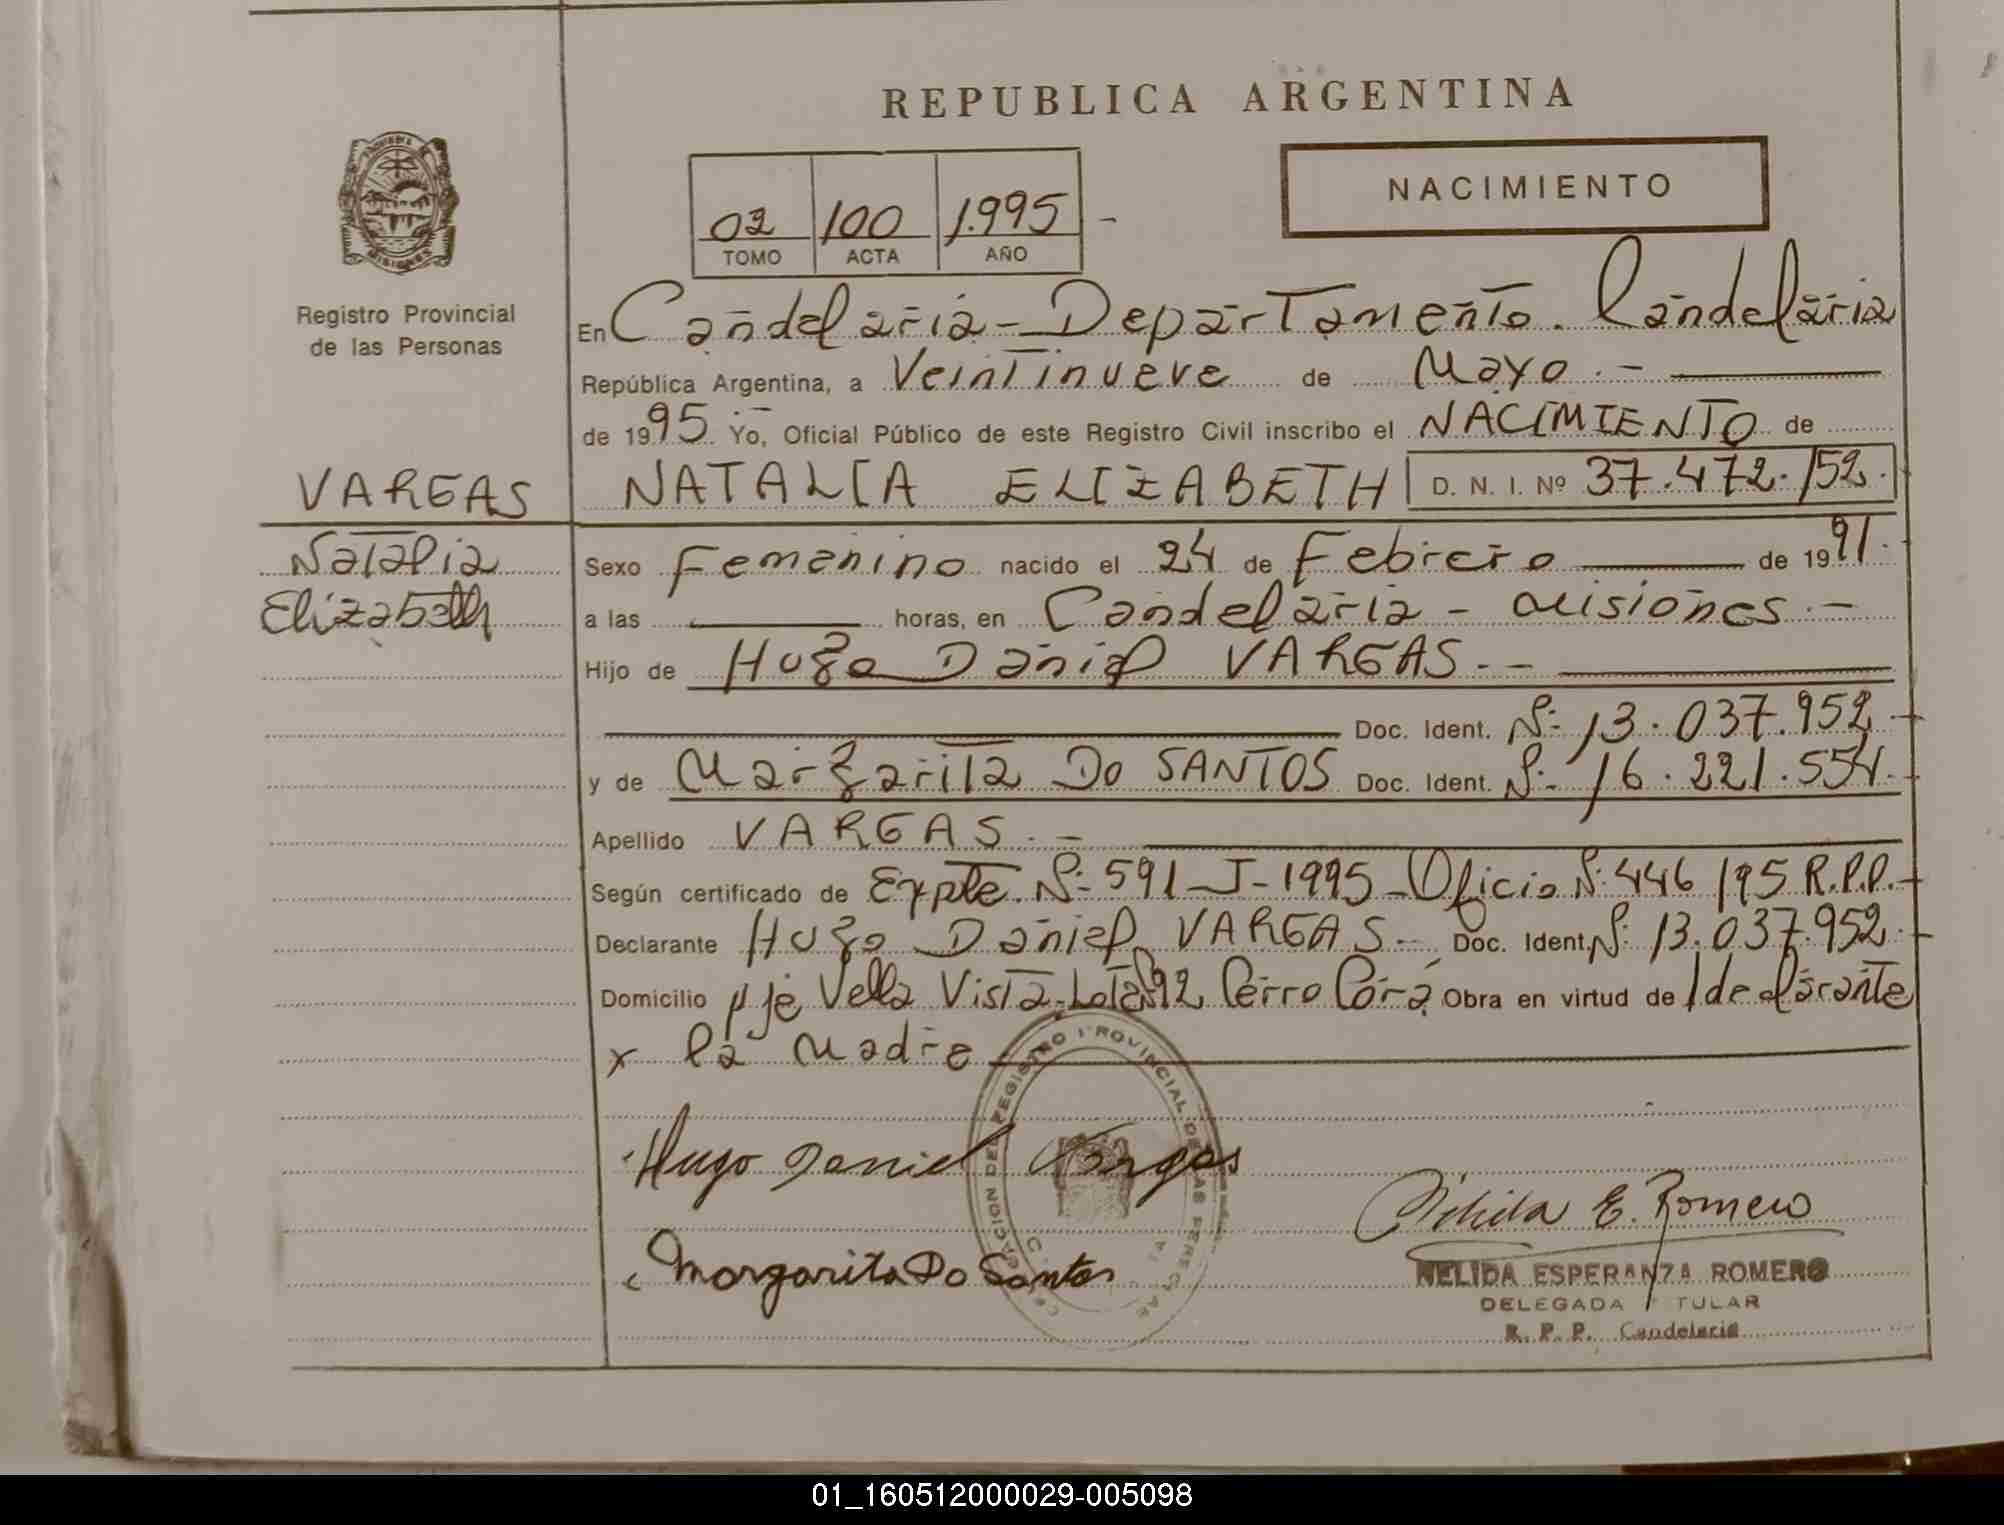 REPUBLICA ARGENTINA
NACIMIENTO
02 100 1.995 -
TOMO ACTA AÑO
Registro Provincial
de las Personas
En Candelaria - Departamento. Candelaria
República Argentina, a Veintinueve de Mayo.-
de 1995.- Yo, Oficial Público de este Registro Civil inscribo el NACIMIENTO de
VARGAS NATALIA ELIZABETH D. N. I. Nº 37.472.152.
Natalia
Elizabeth
Sexo Femenino nacido el 24 de Febrero de 1991.
a las horas, en Candelaria - Misiones.-
Hijo de Hugo Daniel VARGAS.-
Doc. Ident. Nº 13.037.952.-
y de Margarita Do SANTOS Doc. Ident. Nº 16.221.554.-
Apellido VARGAS.-
Según certificado de Expte. Nº 591-J-1995-Oficio Nº 446/95 R.P.P.-
Declarante Hugo Daniel VARGAS.- Doc. Ident. Nº 13.037.952.-
Domicilio pje Vella Vista-Lote 92 Cerro Corá, Obra en virtud de declarante
x la Madre
Hugo Daniel Vargas
Margarita Do Santos
DEL REGISTRO PROVINCIAL DE LAS PERSONAS
Nélida E. Romero
NELIDA ESPERANZA ROMERO
DELEGADA TITULAR
R. P. P. Candelaria
01_160512000029-005098